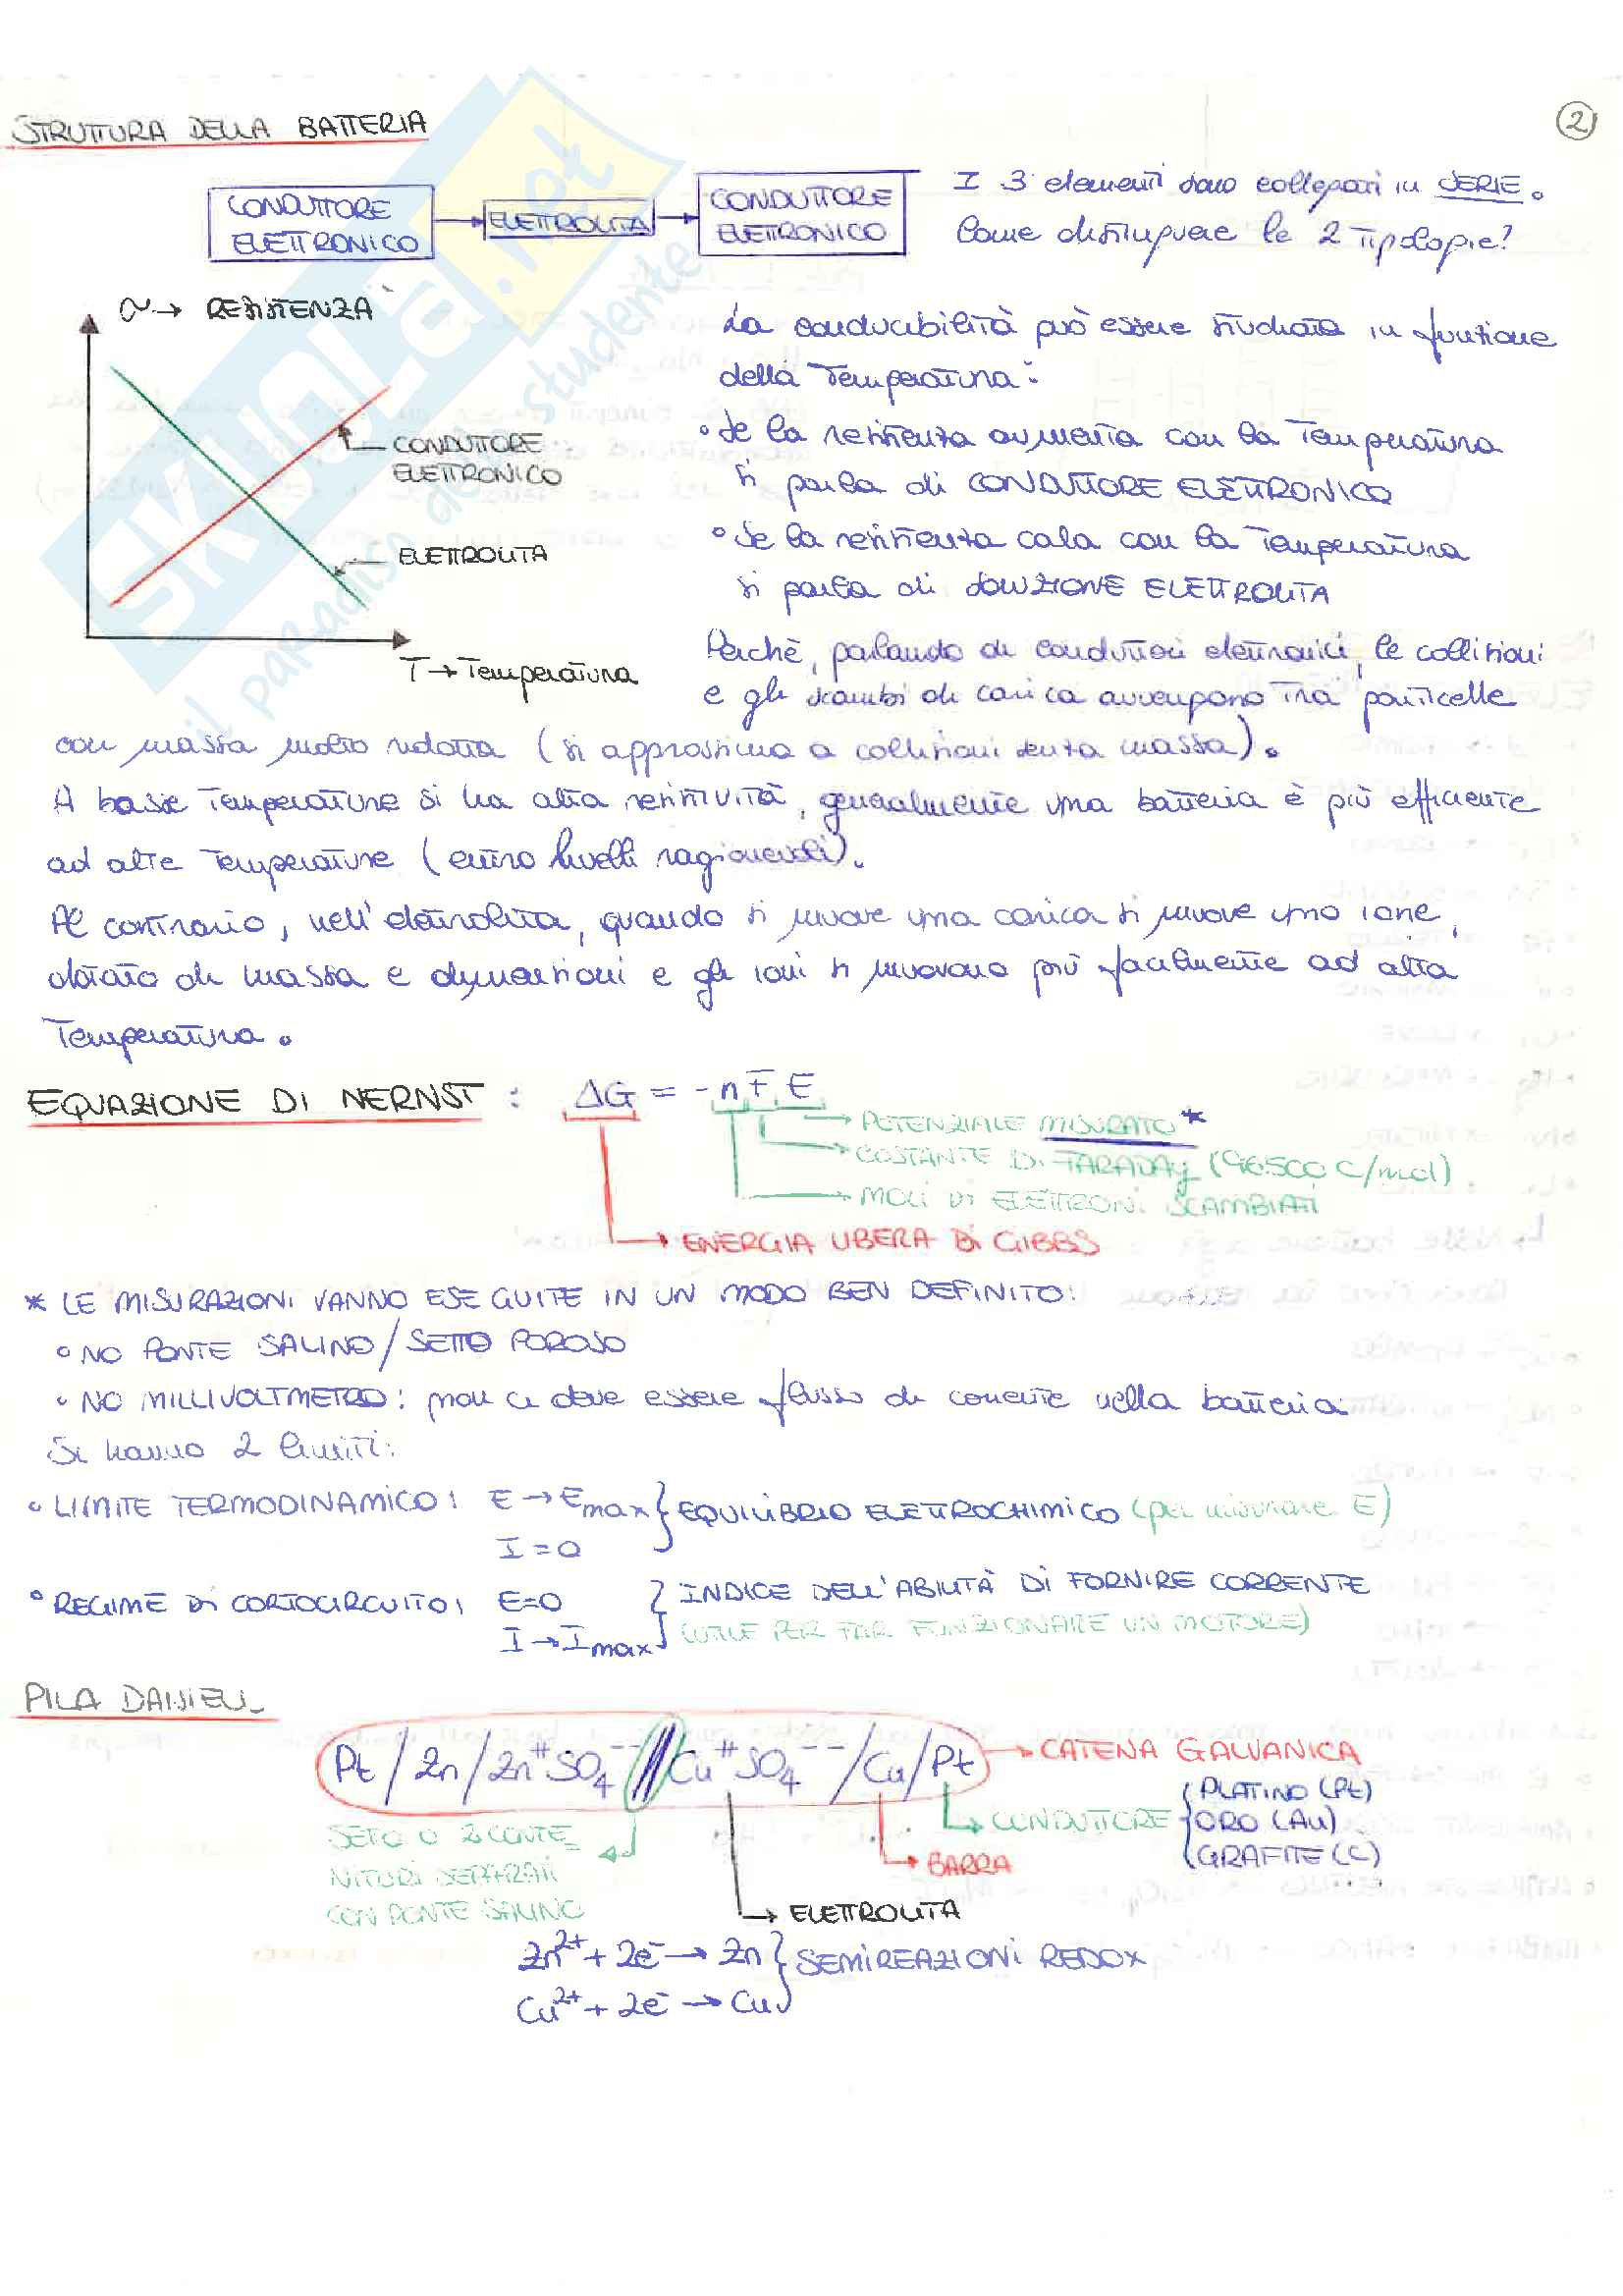 STRUTTURA DELLA BATTERIA
2
CONDUTTORE ELETTRONICO
ELETTROLITA
CONDUTTORE ELETTRONICO
I 3 elementi sono collegati in SERIE.
Come distinguere le 2 tipologie?
→ RESISTENZA
CONDUTTORE ELETTRONICO
ELETTROLITA
T → Temperatura
La conducibilità può essere studiata in funzione
della Temperatura:
• Se la resistenza aumenta con la Temperatura
si parla di CONDUTTORE ELETTRONICO
• Se la resistenza cala con la Temperatura
si parla di SOLUZIONE ELETTROLITA
Perchè, parlando di conduttori elettronici, le collisioni
e gli scambi di carica avvengono tra particelle
con massa molto ridotta (si approssima a collisioni senza massa).
A basse Temperature si ha alta resistività, generalmente una batteria è più efficiente
ad alte Temperature (entro livelli ragionevoli).
Al contrario, nell'elettrolita, quando si muove una carica si muove uno ione,
dotato di massa e dimensioni e gli ioni si muovono più facilmente ad alta
Temperatura.
EQUAZIONE DI NERNST : ΔG = -nFE
POTENZIALE MISURATO *
COSTANTE DI FARADAY (96500 C/mol)
MOLI DI ELETTRONI SCAMBIATI
ENERGIA LIBERA DI GIBBS
* LE MISURAZIONI VANNO ESEGUITE IN UN MODO BEN DEFINITO:
• NO PONTE SALINO/SETTO POROSO
• NO MILLIVOLTMETRO: non ci deve essere flusso di corrente nella batteria
Si hanno 2 limiti:
• LIMITE TERMODINAMICO: E → Emax } EQUILIBRIO ELETTROCHIMICO (per misurare E)
I = 0
• REGIME DI CORTOCIRCUITO: E=0 } INDICE DELL'ABILITÀ DI FORNIRE CORRENTE
I → Imax (UTILE PER FAR FUNZIONARE UN MOTORE)
PILA DANIELL
Pt/Zn/Zn⁺⁺SO₄⁻⁻//Cu⁺⁺SO₄⁻⁻/Cu/Pt → CATENA GALVANICA
SETTO O 2 CONTE=
NITORI SEPARATI
CON PONTE SALINO
CONDUTTORE { PLATINO (Pt)
ORO (Au)
GRAFITE (C)
...
BARRA
ELETTROLITA
Zn²⁺ + 2e⁻ → Zn } SEMIREAZIONI REDOX
Cu²⁺ + 2e⁻ → Cu
SKUOLA.net
il paradiso dello studente